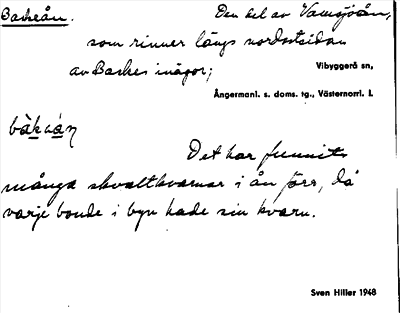 Backeån. Den del av Vamsjöån,
som rinner längs nordostsidan
av Backes inägor; Vibyggerå sn,
Ångermanl. s. doms. tg., Västernorrl. l.
Det har funnits
många skvaltkvarnar i ån förr, då
varje bonde i byn hade sin kvarn.
Sven Hiller 1948